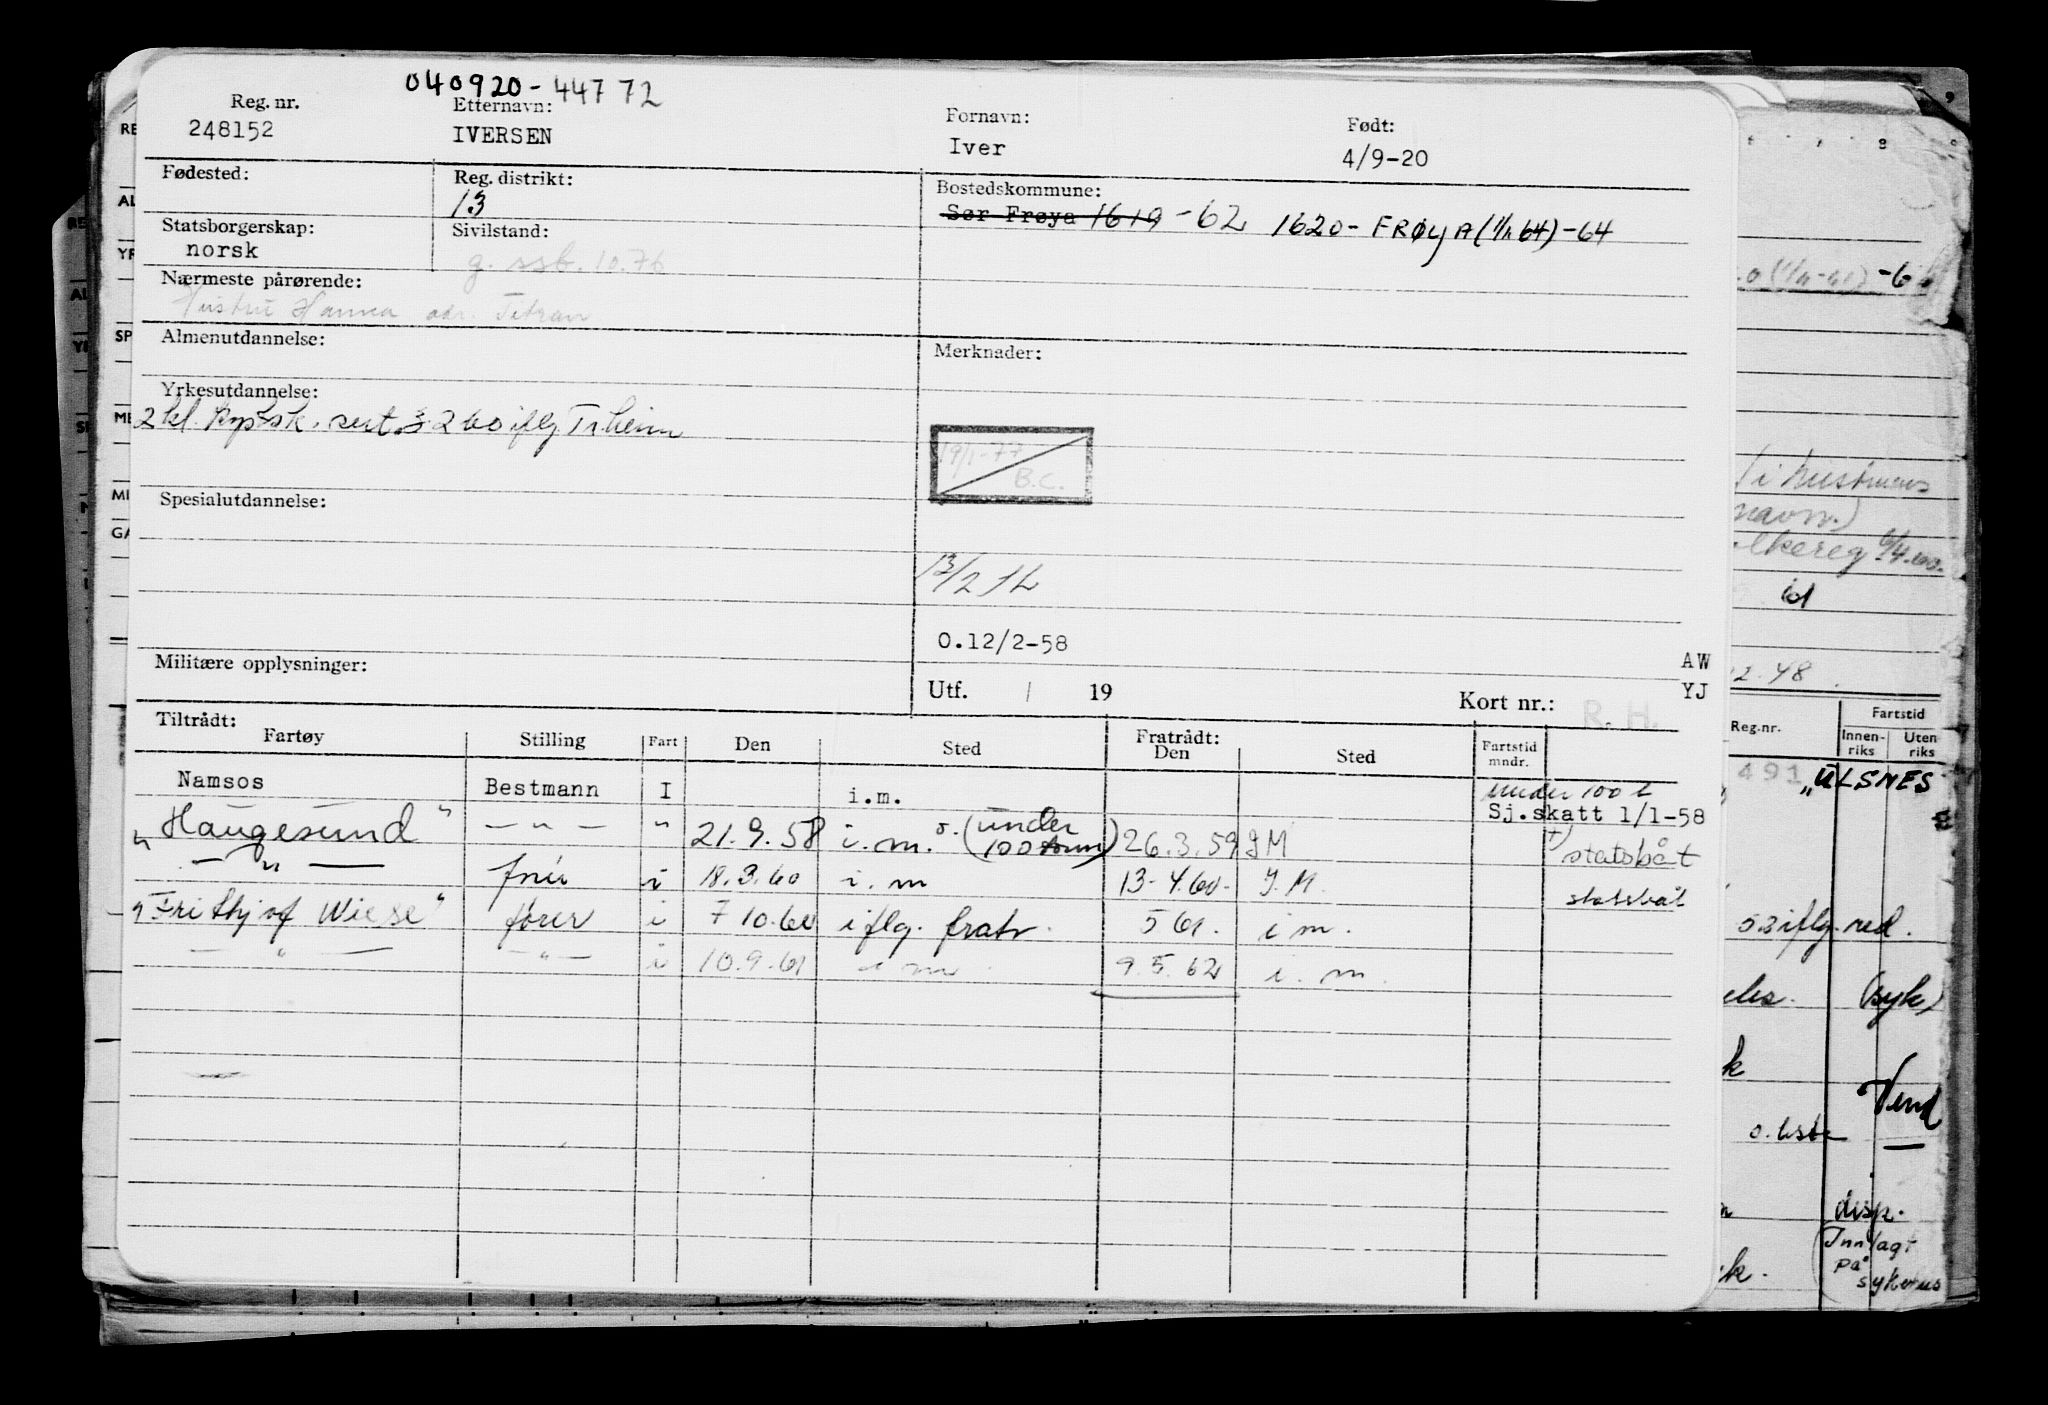 040920-44772
Reg. nr. Etternavn: Fornavn: Født:
248152 IVERSEN Iver 4/9-20
Fødested: Reg. distrikt: Bostedskommune:
13 Sør Frøya 1619-62 1620-FRØYA(1/1 64)-64
Statsborgerskap: Sivilstand:
norsk g. ssb. 10.76
Nærmeste pårørende:
Hustru Hanna adr. Titran
Almenutdannelse: Merknader:
Yrkesutdannelse:
2 kl. kyptsk. sert. 3.2 60 iflg Tr.heim
19/1-77
B.C.
Spesialutdannelse:
13/2
O.12/2-58
Militære opplysninger: AW
Utf. / 19 Kort nr.: YJ
R. H.
Tiltrådt: Fratrådt:
Fartøy Stilling Fart Den Sted Den Sted Fartstid mndr.
Namsos Bestmann I i.m. under 100 t
Sj.skatt 1/1-58
"Haugesund" — " — " 21.9.58 i.m. (under 100 tonn) 26.3.59 I M +) statsbåt
— " — fører i 18.3.60 i.m 13-4.60- I.M. statsbåt
"Frithjof Wiese" fører i 7 10.60 iflg. fratr. 5 61. i m.
— " — — " — i 10.9.61 i m 9.5.62 i. m.
RE
AL
YR
SP
ME
MI
GA
-6
i hustruens
navn.)
6/4.60.
id
12.48.
Reg.nr. Fartstid
Innen-riks Uten riks
491 "ULSNES
53 iflg. red.
(syk)
Vend
o. liste
disp.
(Innlagt
på
sykehus